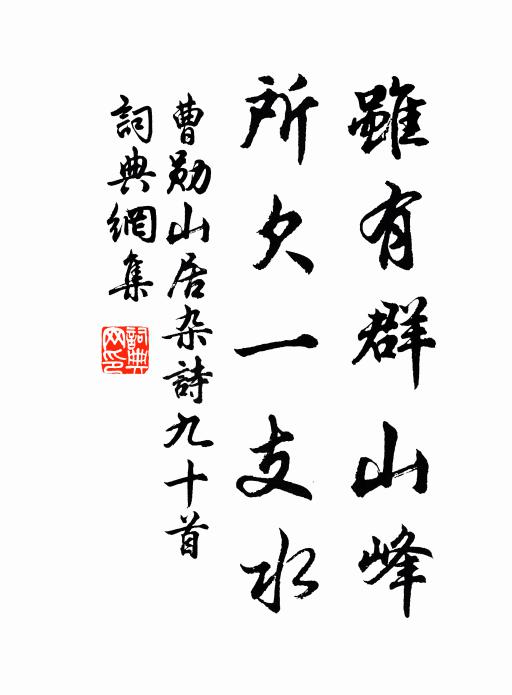 雖有群山峰
所欠一支水
曹勛山居杂詩九十首
詞典網集
詞典
网印